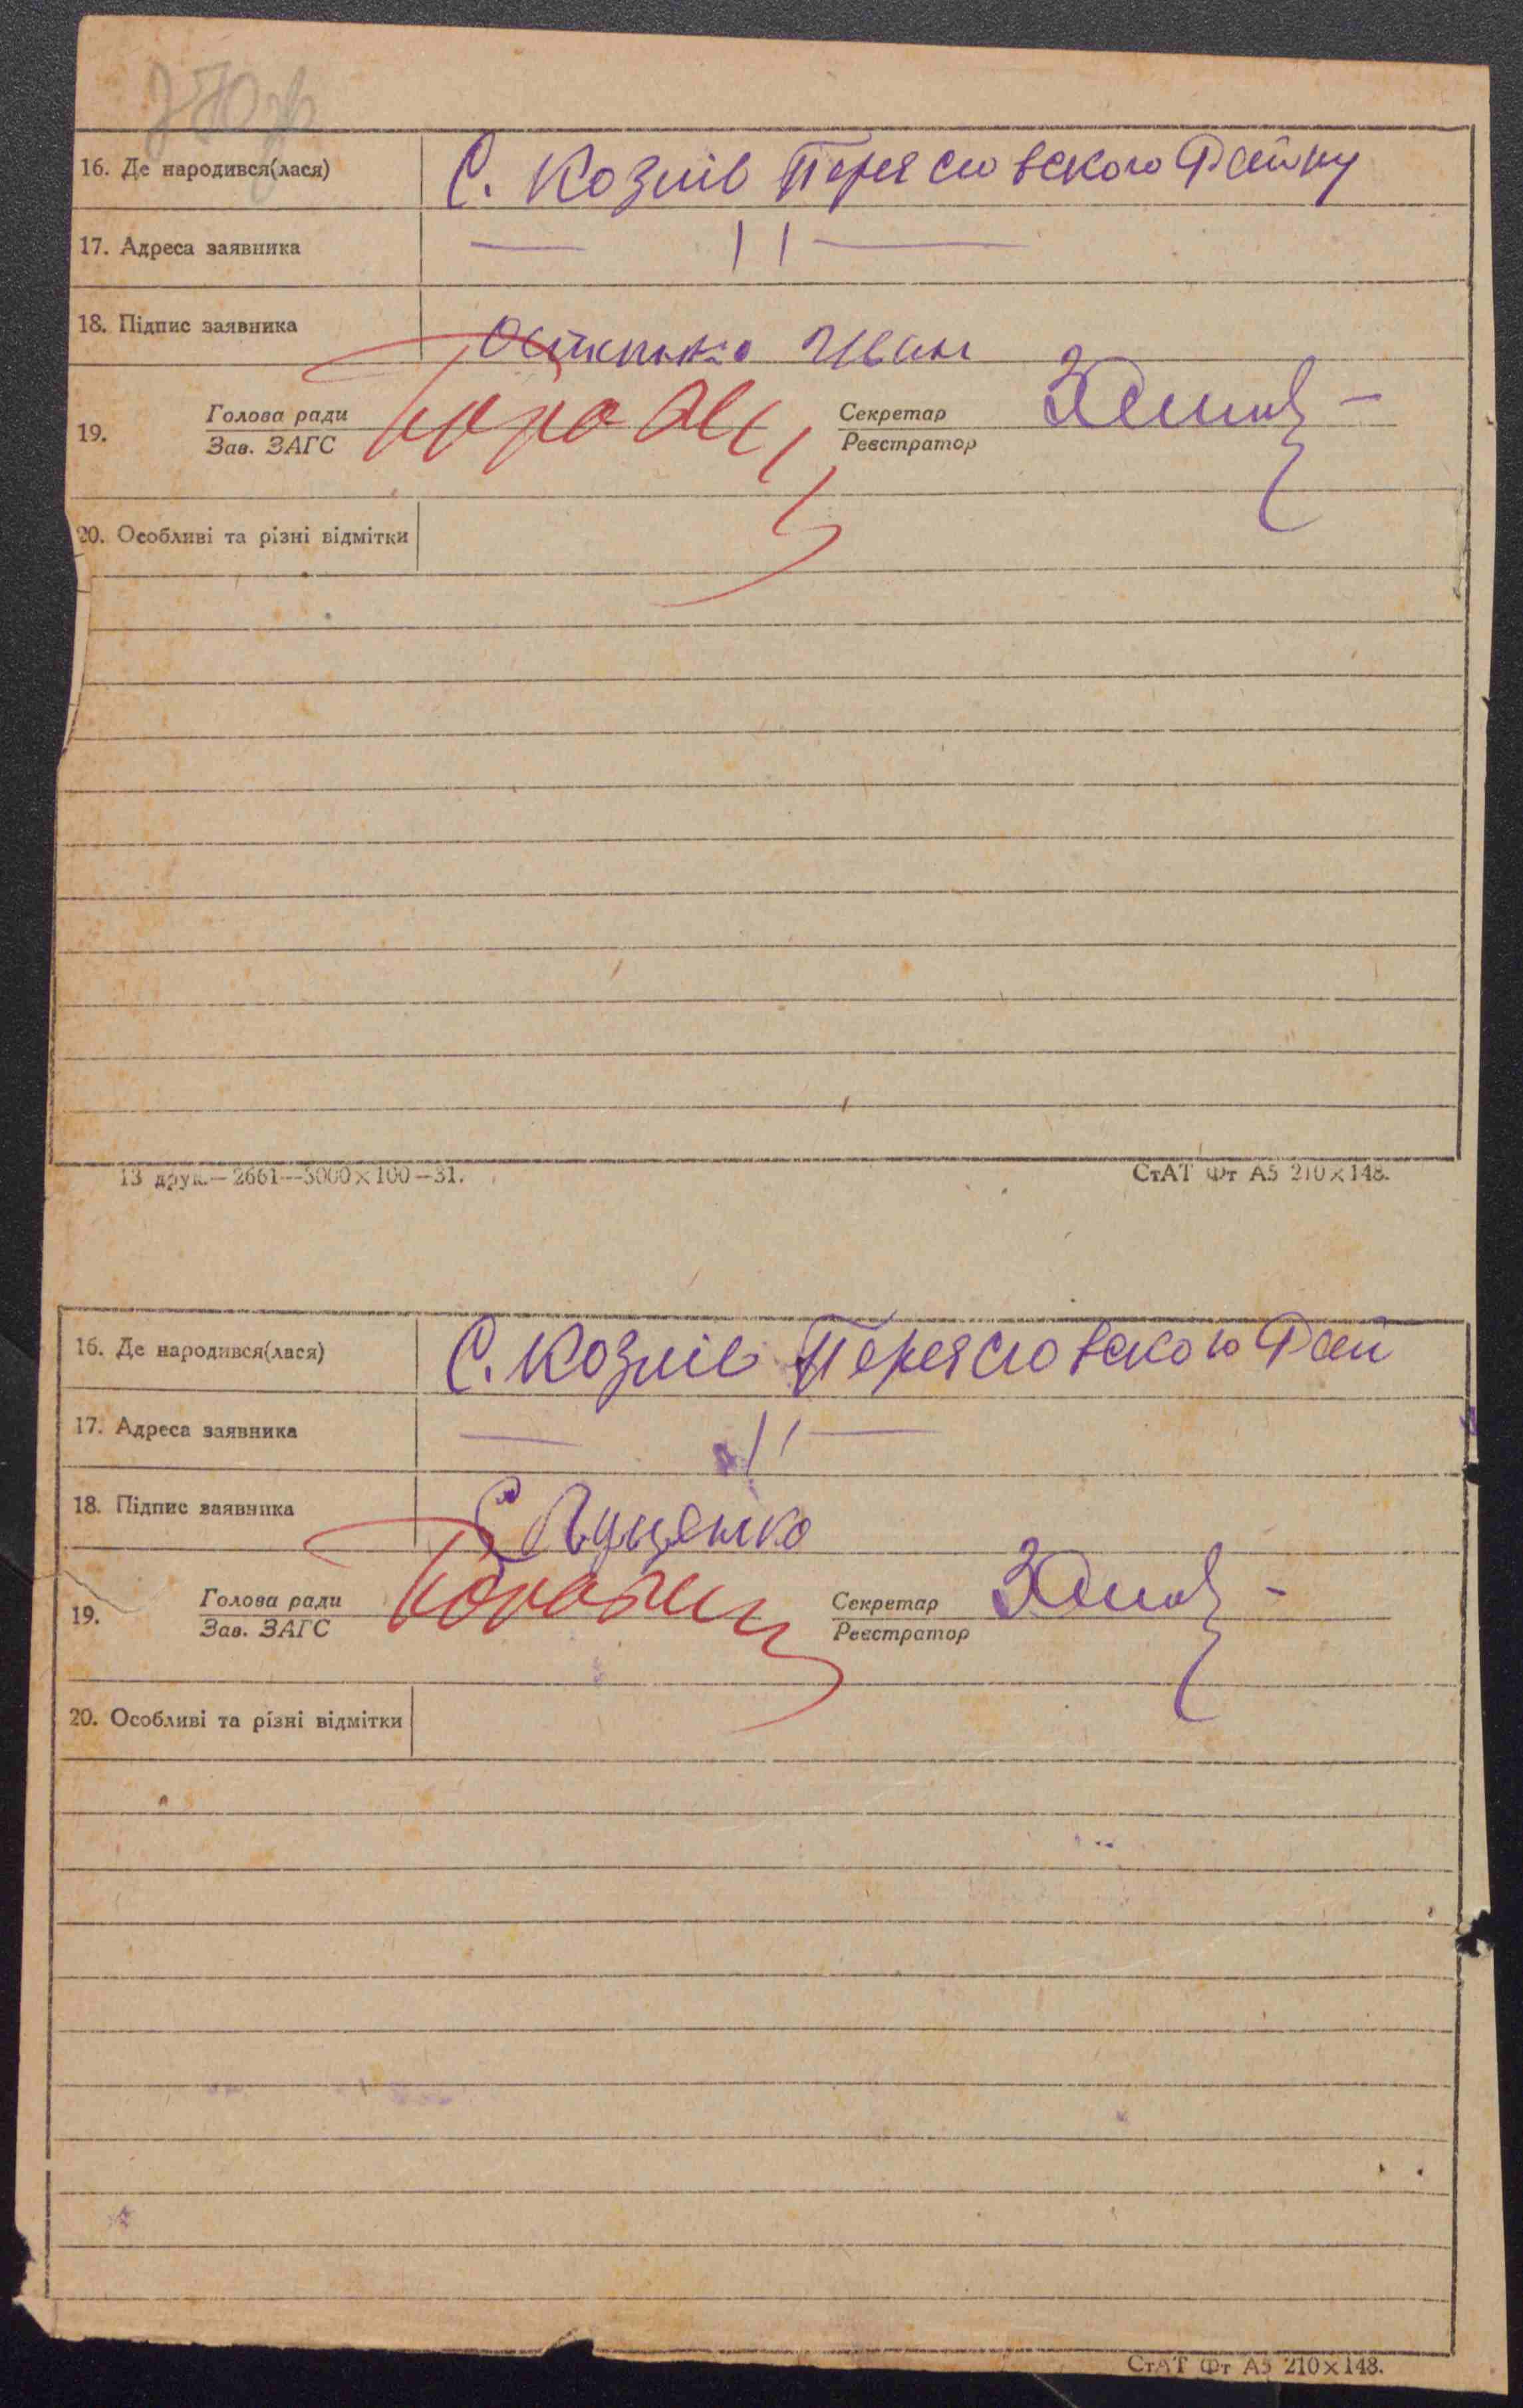 16. Де народився(лася) С. Козлів Переясловского Району
17. Адреса заявника — 11 —
18. Підпис заявника Остапенко Иван
19. Голова ради Секретар
Зав. ЗАГС Реєстратор
20. Особливі та різні відмітки
13 друк.—2661—5000×100—31. СтАТ Фт А5 210×148.
16. Де народився(лася) С. Козлів Переясловского Рай
17. Адреса заявника — 11 —
18. Підпис заявника С Луценко
19. Голова ради Секретар
Зав. ЗАГС Реєстратор
20. Особливі та різні відмітки
СтАТ Фт А5 210×148.